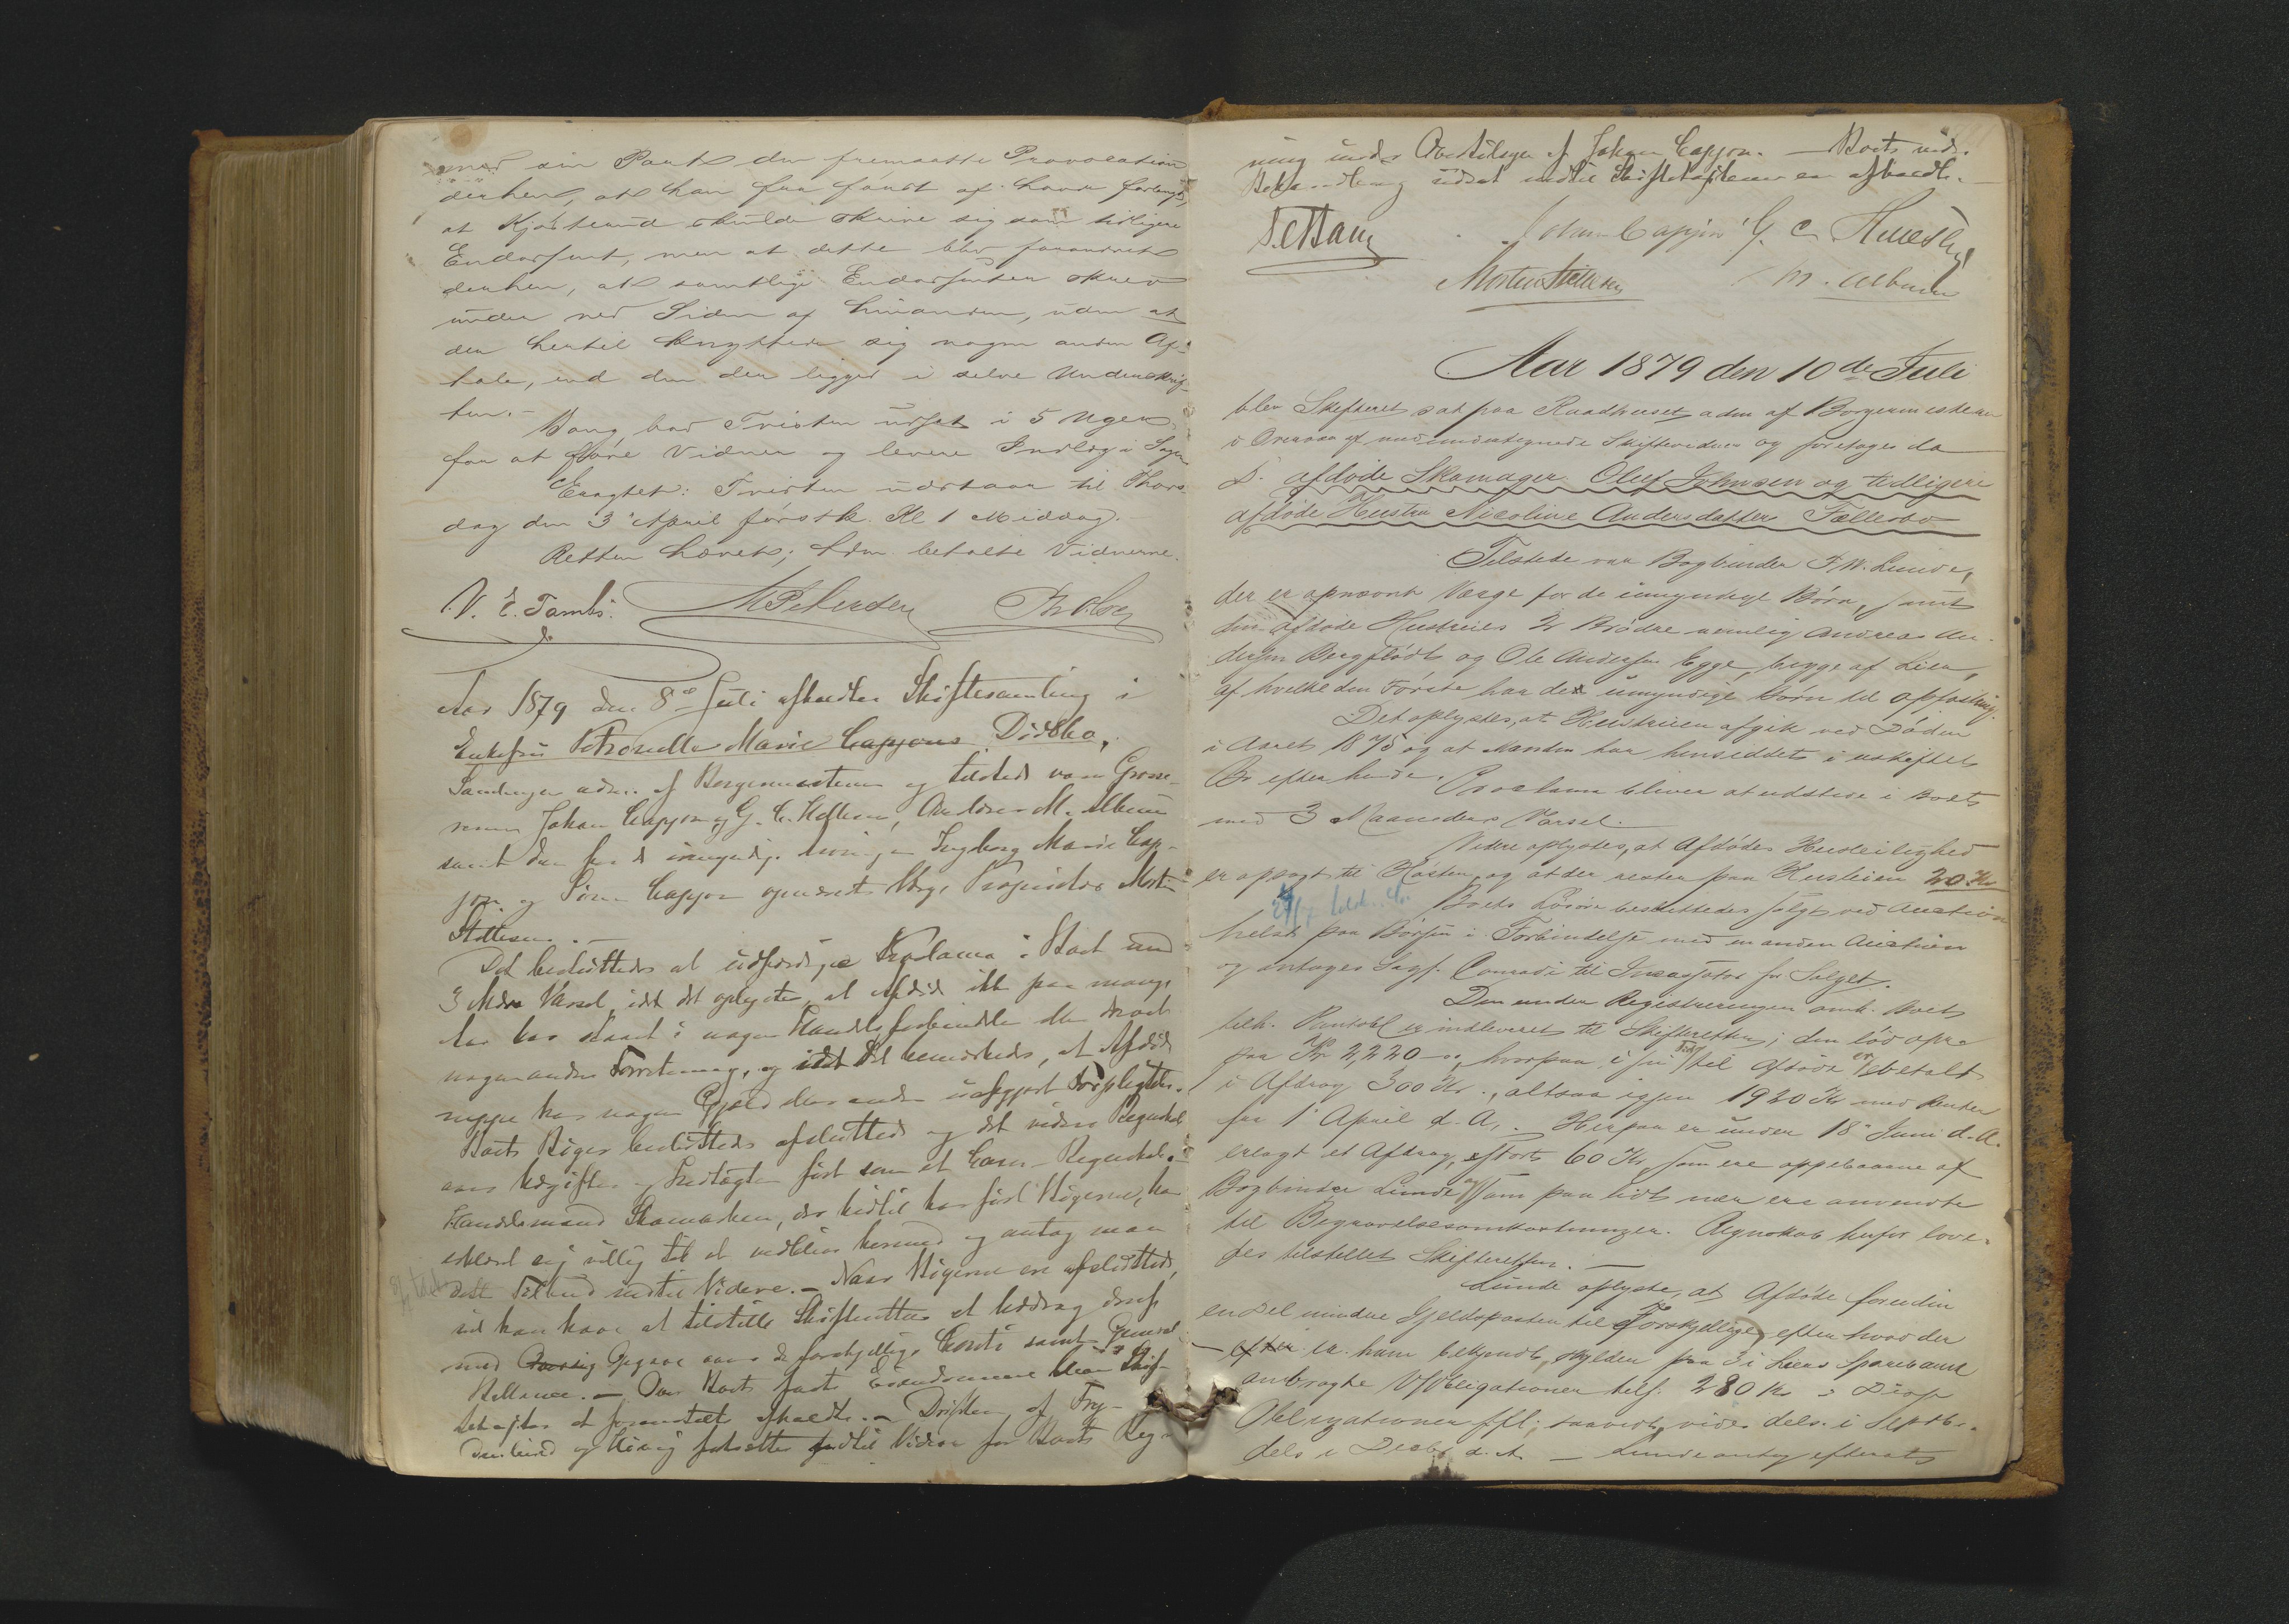 med sin Part den fremsatte Provocation
derhen, at han fra først af havde forlangt,
at Kjøsterud skulde skrive sig som tidligere
Endossent, men at dette blev forandret
derhen, at samtlige Endossenter skrev
under ved Siden af hinanden, uden at
der hertil knyttede sig nogen anden Af-
tale, end den der ligger i selve Underskrif-
ten. -
Bang bad Tvisten udsat i 5 Uger
for at føre Vidner og levere Indlæg i Sagen
Eragtet: Tvisten udstaar til Thors-
dag den 3' April førstk. Kl 1 Middag.
Retten hævet; betalte Vidnerne.
V. E. Tambs. M Pedersen
Aar 1879 den 8de Juli afholdtes Skiftesamling i
Enkefru Petronelle Marie Cappons Dødsbo.
Samlingen adm. af Borgermesteren og tilstede vare Grosse-
rerne Johan Cappon og G. C. M. Album
samt den for de umyndige Ingborg Marie Cap-
pon og Cappon opnævnte Værge Proprietær Morten
Stillesen. -
Det besluttedes at udfærdige Proklama i Boet med
3 Mdrs Varsel, idet det oplystes, at Afdøde ikke paa mange
Aar har staaet i nogen Handelsforbindelse eller drevet
nogen anden Forretning, og idet det bemærkedes, at Afdøde
neppe har nogen Gjæld eller anden uafgjort Forpligtelse.
Boets Bøger besluttedes afsluttede og det videre Regnskab
over Udgifter og Indtægter ført som et Regnskab. -
Handelsmand Skamarken, der hidtil har ført Bøgerne, har
erklæret sig villig til at vedblive hermed og antog man
dette Tilbud indtil Videre. - Naar Bøgerne ere afsluttede,
vil han have at tilstille Skifteretten et Uddrag deraf
med Opgave over de forskjellige Conti samt General
Ballance. - Over Boets faste Eiendomme blev Skif-
tetaxter at foranstalte afholdte. - Driften af Fry-
denlund og fortsættes indtil Videre for Boets Reg-
ning under Overtilsyn af Johan Cappon. - Boets vid.
Behandling udsat indtil Skiftetaxterne ere afholdte.
Johan Cappon G. C.
Morten Stillesen M. Album
Aar 1879 den 10de Juli
blev Skifteret sat paa Raadhuset adm af Borgermesteren
i Overvær af medundertegnede Skiftevidner og foretoges da
D. afdøde Skomager Oluf Johnsen og tidligere
afdøde Hustru Nicoline Andersdatters Fællesbo
Tilstede var Bogbinder F. W. Lunde,
der er opnævnt Værge for de umyndige Børn, samt
den afdøde Hustrues 2 Brødre nemlig Andreas An-
dersen Bergflødt og Ole Andersen Egge, begge af Lier,
af hvilke den Første har de umyndige Børn til opfostring.
Det oplystes, at Hustruen afgik ved Døden
i Aaret 1875 og at Manden har hensiddet i uskiftet
Bo efter hende. Proclama bliver at udstede i Boet
med 3 Maaneders Varsel.
Videre oplystes, at Afdødes Husleilighed
er opsagt til Høsten, og at der rester paa Husleien 20 Kr
Boets Løsøre besluttedes solgt ved Auction
helst paa Børsen i Forbindelse med en anden Auction
og antoges Sagf. Conradi til Incassator for Salget.
Den under Registreringen omh. Boet
tilh. Pantobl er indleveret til Skifteretten; den lød opr.
paa Kr 2,220 - og hvorpaa i sin Tid til Afdøde er betalt
i Afdrag 300 Kr., altsaa igjen 1920 Kr med Renter
fra 1' April d. A. Herpaa er under 18' Juni d. A.
erlagt et Afdrag, stort 60 Kr, som ere oppebaarne af
Bogbinder Lunde og som paa lidt nær ere anvendte
til Begravelsesomkostninger. Regnskab herfor love-
des tilstillet Skifteretten. -
Lunde oplyste, at Afdøde foruden
en Del mindre Gjeldsposter til Forskjellige, efter hvad der
- er ham bekjendt, skylder paa 3 i Liers Sparebank
anbragte V/Obligationer tils. 280 Kr - Disse
Obligationer ffl., saavidt vides dels i Septbr.
dels i Decbr d. A - Lunde antog efterat